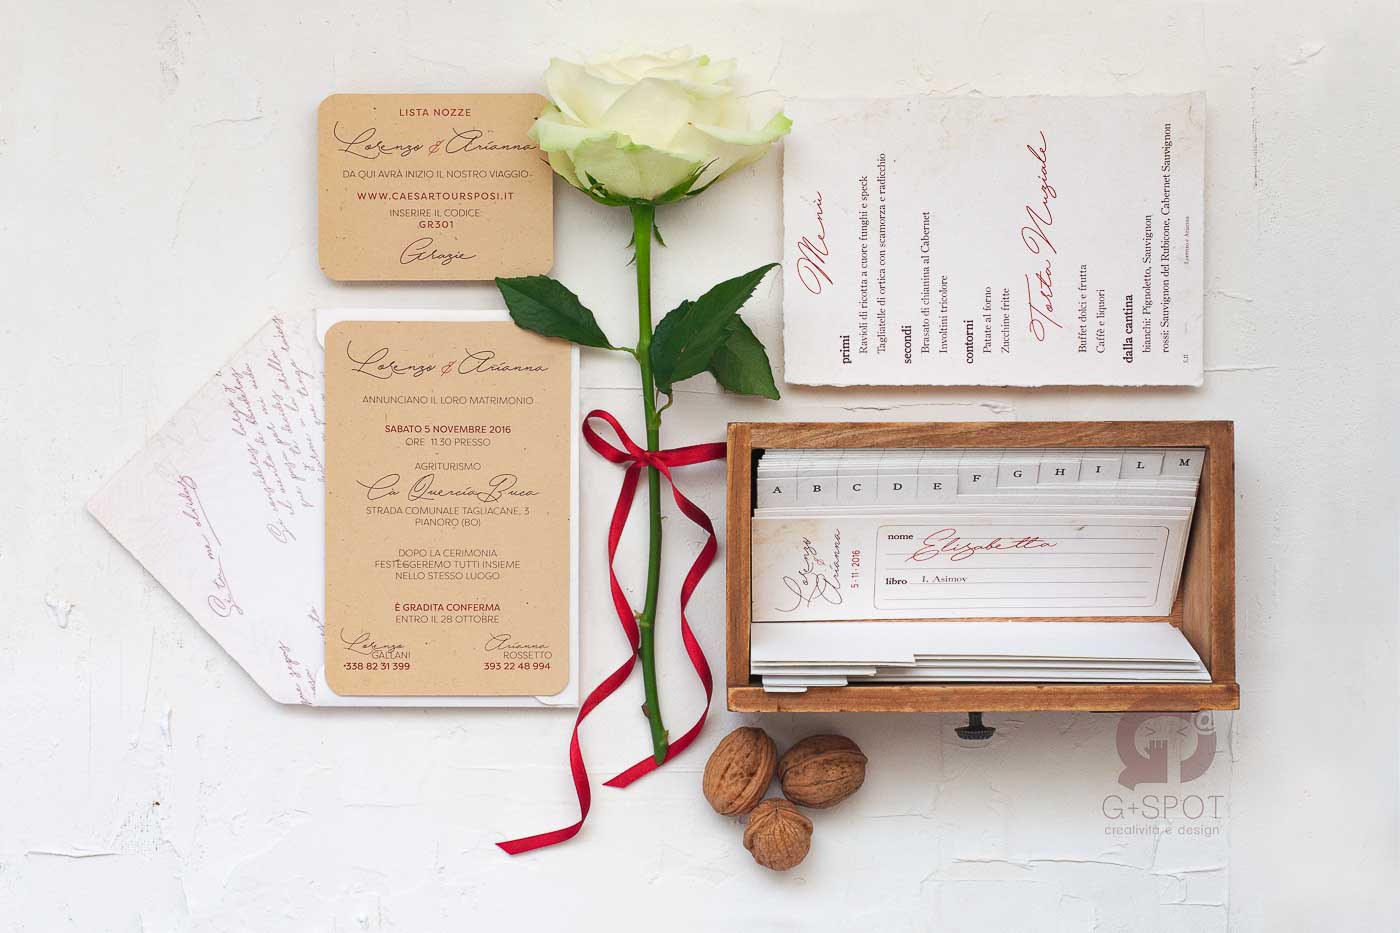 LISTA NOZZE
Lorenzo & Arianna
DA QUI AVRÀ INIZIO IL NOSTRO VIAGGIO
WWW.CAESARTOURSPOSI.IT
INSERIRE IL CODICE:
GR301
Grazie
Lorenzo & Arianna
ANNUNCIANO IL LORO MATRIMONIO
SABATO 5 NOVEMBRE 2016
ORE 11.30 PRESSO
AGRITURISMO
Cà Quercia Buca
STRADA COMUNALE TAGLIACANE, 3
PIANORO (BO)
DOPO LA CERIMONIA
FESTEGGEREMO TUTTI INSIEME
NELLO STESSO LUOGO
È GRADITA CONFERMA
ENTRO IL 28 OTTOBRE
Lorenzo
GALLANI
338 82 31 399
Arianna
ROSSETTO
393 22 48 994
Si tu me olvidas
Menù
primi
Ravioli di ricotta a cuore funghi e speck
Tagliatelle di ortica con scamorza e radicchio
secondi
Brasato di chianina al Cabernet
Involtini tricolore
contorni
Patate al forno
Zucchine fritte
Torta Nuziale
Buffet dolci e frutta
Caffè e liquori
dalla cantina
bianchi: Pignoletto, Sauvignon
rossi: Sauvignon del Rubicone, Cabernet Sauvignon
Lorenzo e Arianna
A B C D E F G H I L M
Lorenzo
&
Arianna
5·11·2016
nome Elisabetta
libro I. Asimov
G+SPOT
creatività e design